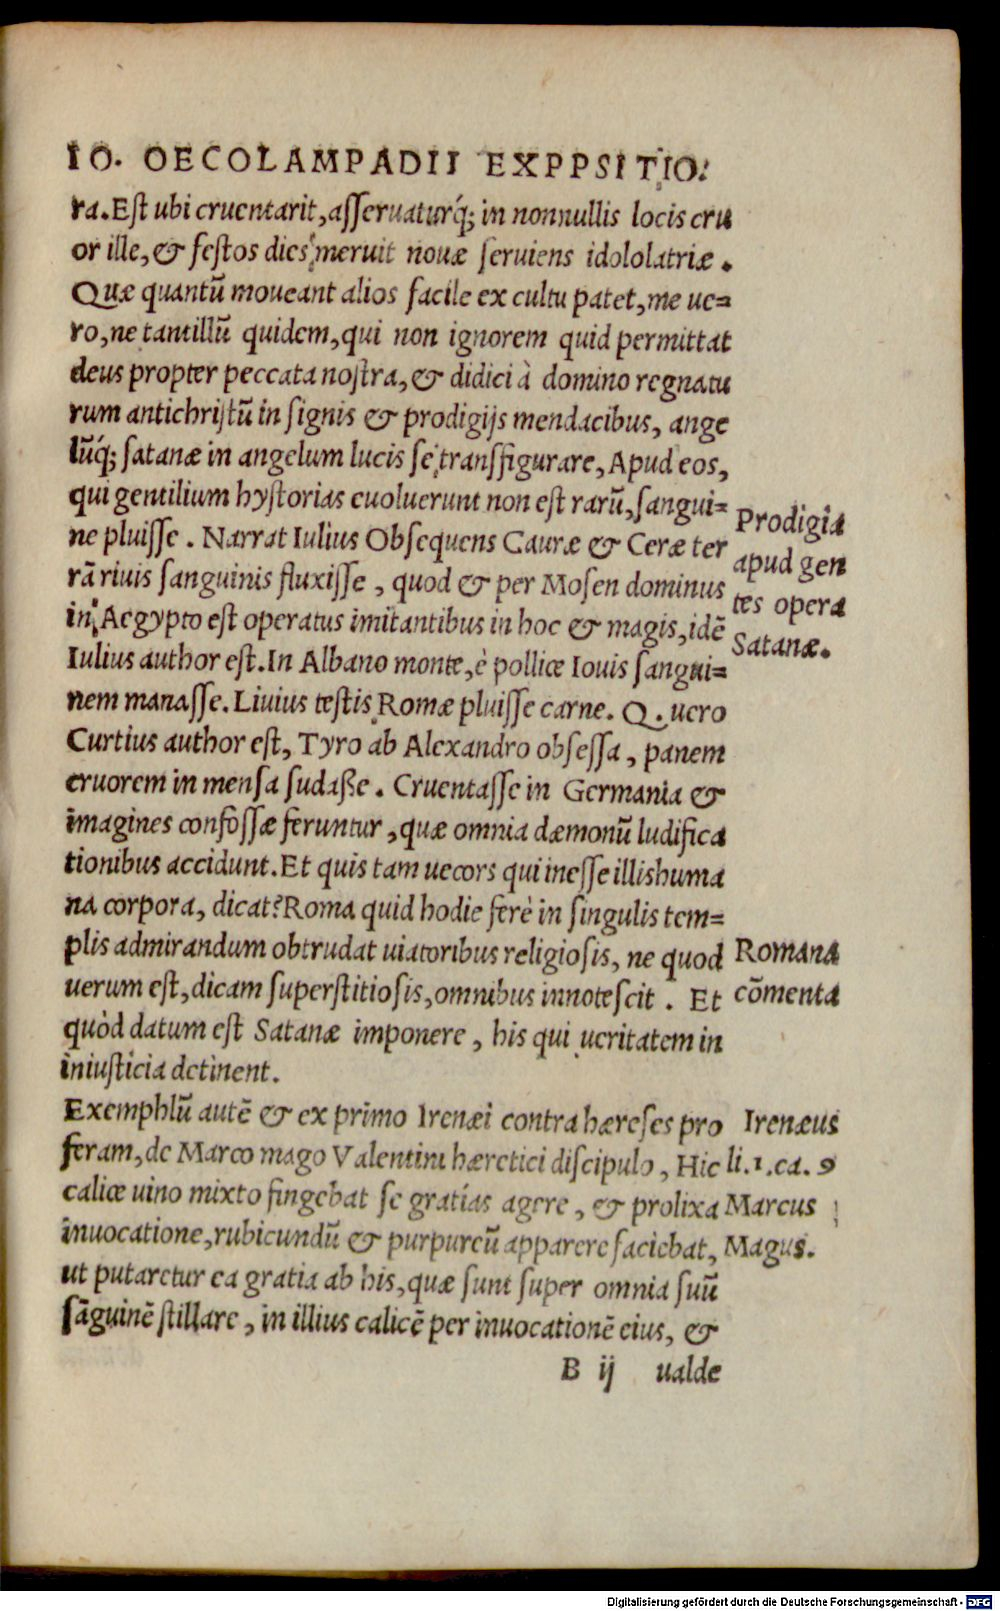 IO. OECOLAMPADII EXPPSITIO.
ra. Eſt ubi cruentarit, aſſeruaturq́; in nonnullis locis cru
or ille, & feſtos dies meruit nouæ ſeruiens idololatriæ.
Quæ quantū moueant alios facile ex cultu patet, me ue=
ro, ne tantillū quidem, qui non ignorem quid permittat
deus propter peccata noſtra, & didici à domino regnatu
rum antichriſtū in ſignis & prodigijs mendacibus, ange
lūq́; ſatanæ in angelum lucis ſe tranſfigurare, Apud eos,
qui gentilium hyſtorias euoluerunt non eſt rarū, ſangui=
ne pluiſſe. Narrat Iulius Obſequens Cauræ & Ceræ ter
rā riuis ſanguinis fluxiſſe, quod & per Moſen dominus
in Aegypto eſt operatus imitantibus in hoc & magis, idē
Iulius author eſt. In Albano monte, è pollice Iouis ſangui=
nem manaſſe. Liuius teſtis Romæ pluiſſe carne. Q. uero
Curtius author eſt, Tyro ab Alexandro obſeſſa, panem
cruorem in menſa ſudaße. Cruentaſſe in Germania &
imagines confoſſæ feruntur, quæ omnia dæmonū ludifica
tionibus accidunt. Et quis tam uecors qui ineſſe illis huma
na corpora, dicat? Roma quid hodie ferè in ſingulis tem=
plis admirandum obtrudat uiatoribus religioſis, ne quod
uerum eſt, dicam ſuperſtitioſis, omnibus innoteſcit. Et
quòd datum eſt Satanæ imponere, his qui ueritatem in
iniuſticia detinent.
Exemphlū autē & ex primo Irenæi contra hæreſes pro
feram, de Marco mago Valentini hæretici diſcipulo, Hic
calice uino mixto fingebat ſe gratias agere, & prolixa
inuocatione, rubicundū & purpureū apparere faciebat,
ut putaretur ea gratia ab his, quæ ſunt ſuper omnia ſuū
ſāguinē ſtillare, in illius calicē per inuocationē eius, &
B ij ualde
Prodigia
apud gen
tes opera
Satanæ.
Romana
cōmenta
Irenæus
li.1.ca.9
Marcus
Magus.
Digitalisierung gefördert durch die Deutsche Forschungsgemeinschaft - DFG